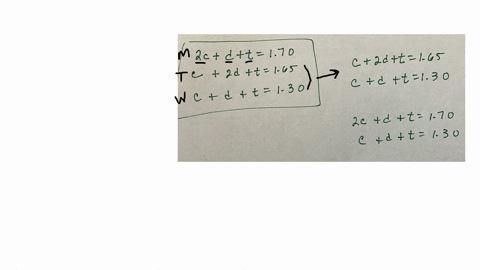 M 2c + d + t = 1.70
T c + 2d + t = 1.65
W c + d + t = 1.30
c + 2d + t = 1.65
c + d + t = 1.30
2c + d + t = 1.70
c + d + t = 1.30